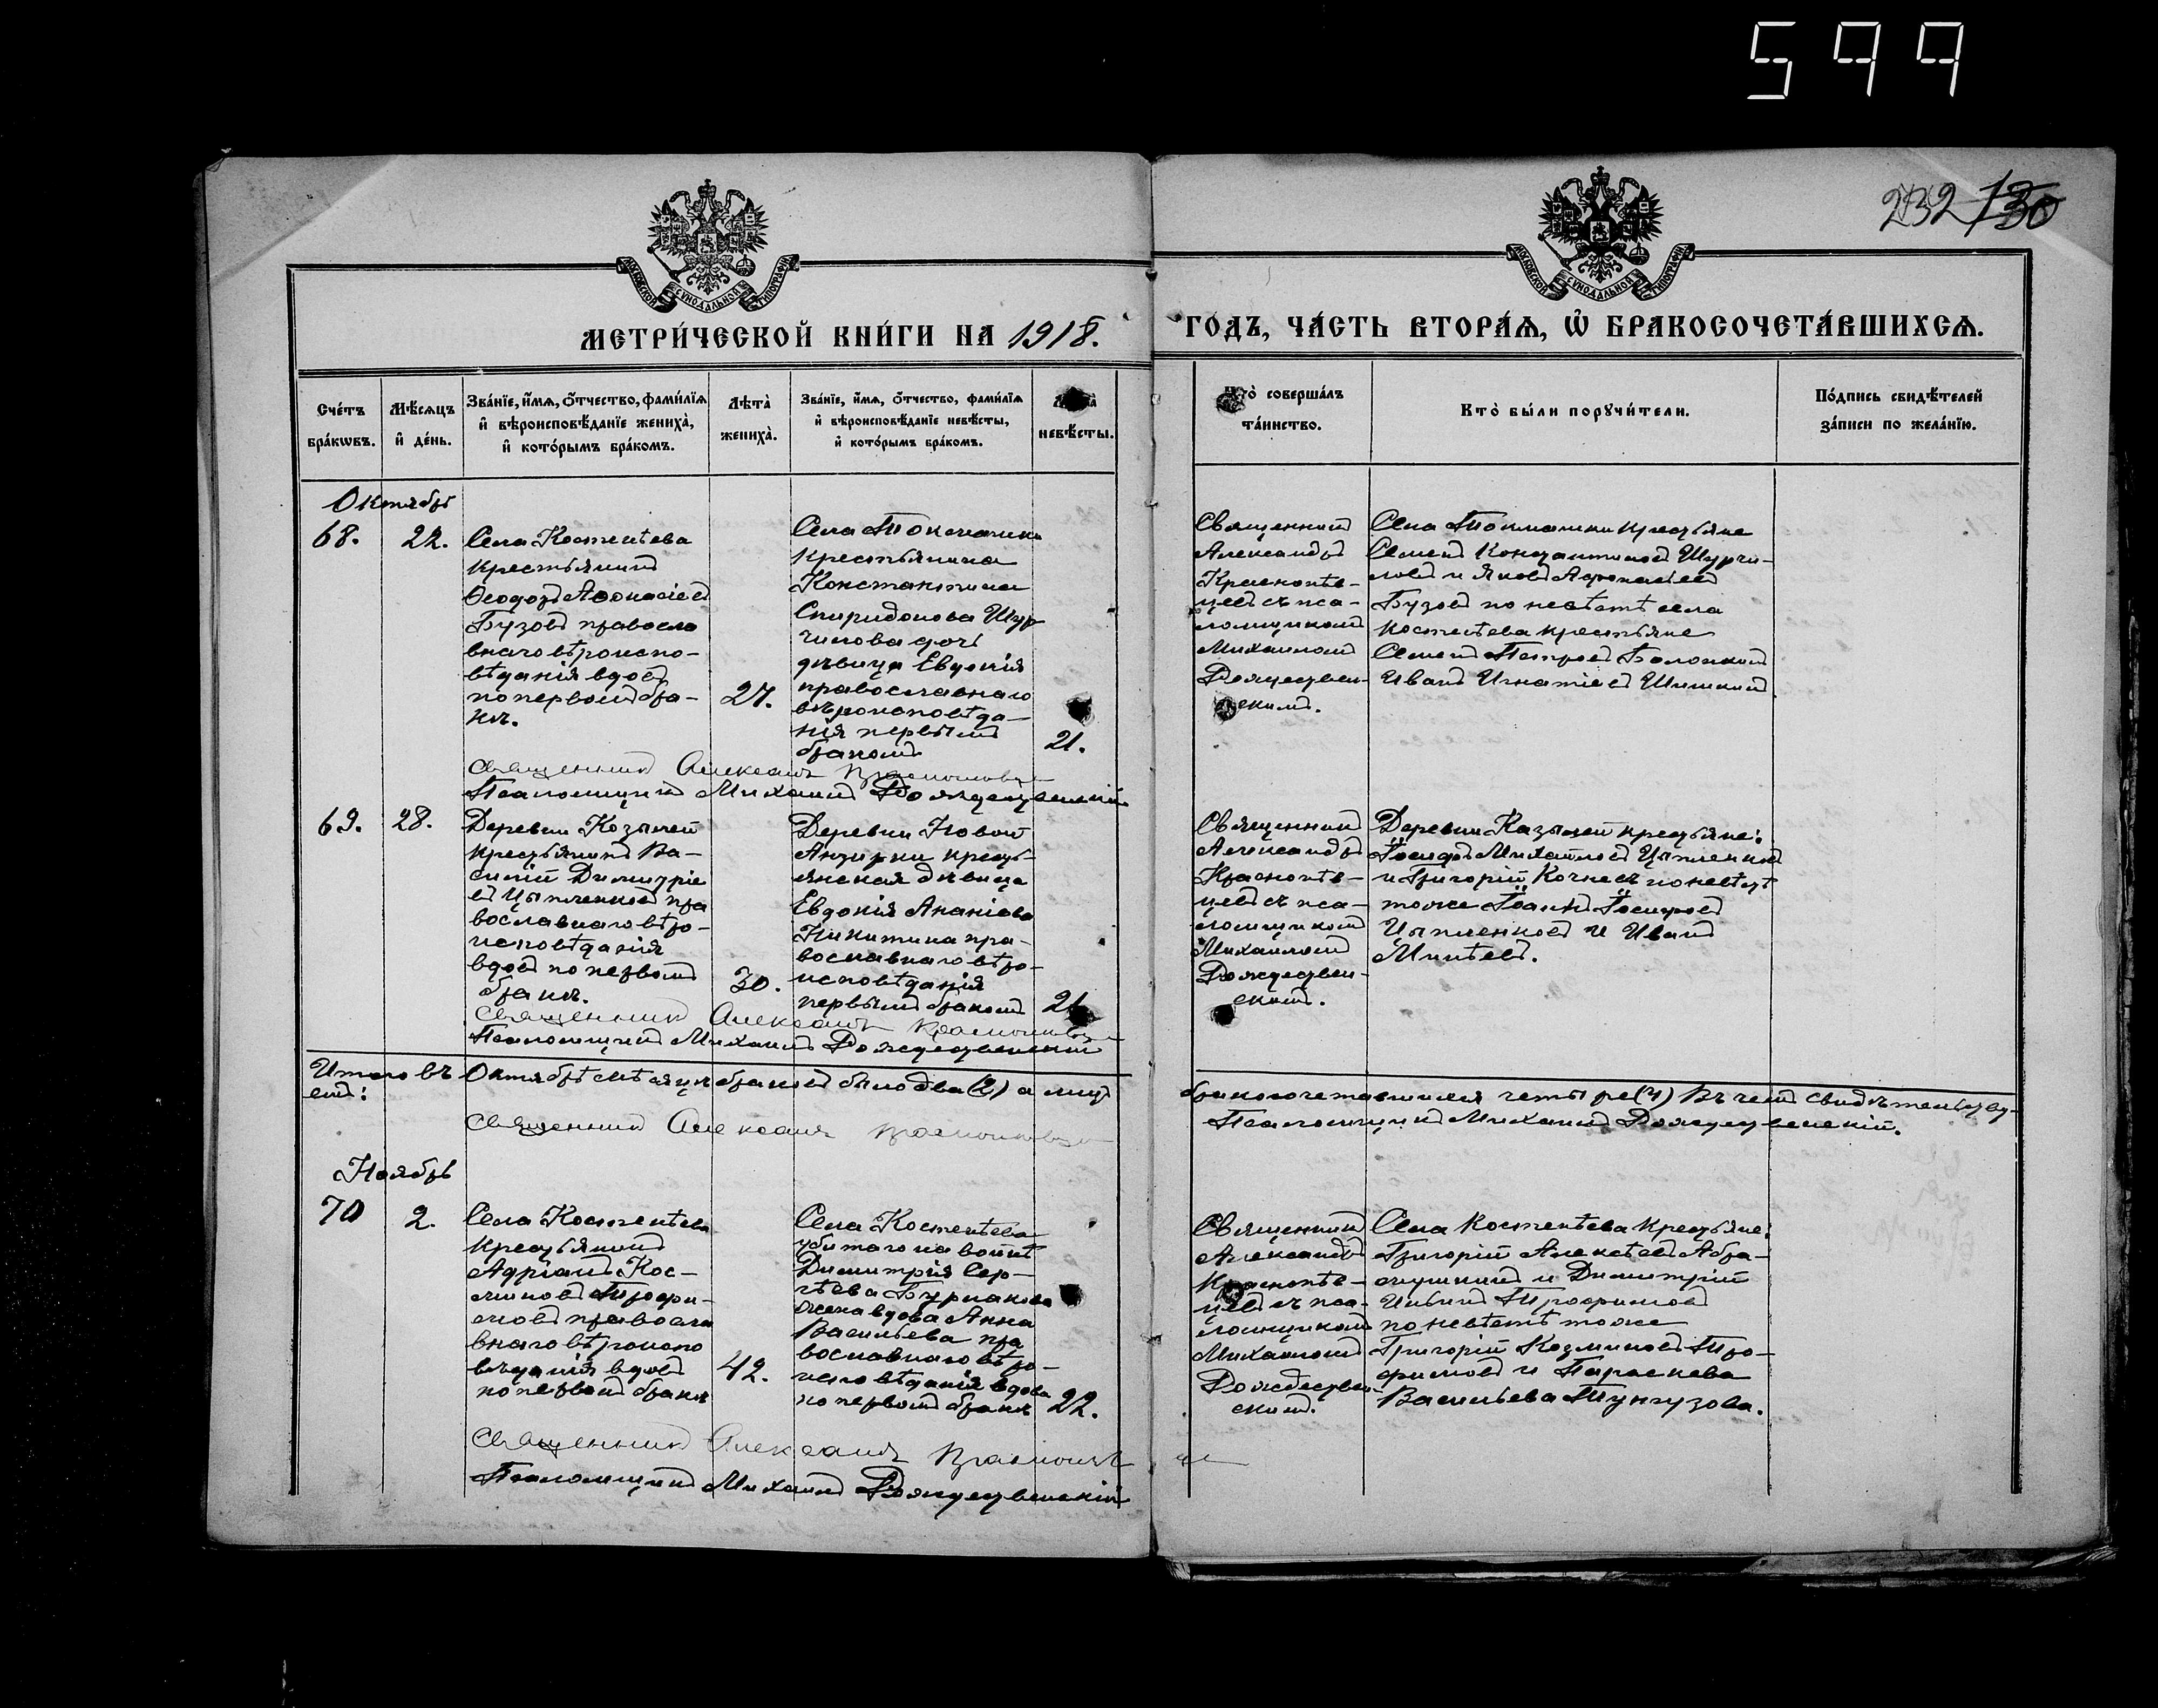 599
232 130
МОСКОВСКОЙ СУНОДАЛЬНОЙ ТИПОГРАФІИ
МОСКОВСКОЙ СУНОДАЛЬНОЙ ТИПОГРАФІИ
МЕТРИ́ЧЕСКОЙ КНИ́ГИ НА 1918.
ГОДЪ, ЧА́СТЬ ВТОРА́Ѧ, Ѽ БРАКОСОЧЕТА́ВШИХСѦ.
Сче́тъ бра́кѡвъ.
Мѣ́сѧцъ и҆ де́нь.
Зва́нїе, и҆́мѧ, ѻ҆́тчество, фами́лїѧ
и҆ вѣроисповѣ́данїе жениха̀,
и҆ кото́рымъ бра́комъ.
Лѣта̀ жениха̀.
Зва́нїе, и҆́мѧ, ѻ҆́тчество, фами́лїѧ
и҆ вѣроисповѣ́данїе невѣ́сты,
и҆ кото́рымъ бра́комъ.
невѣ́сты.
Кто̀ соверша́лъ
та́инство.
Кто̀ бы́ли порꙋчи́тели.
По́дпись свидѣ́телей
за́писи по жела́нїю.
Октябрь
68.
22.
Села Костенѣева
крестьянинъ
Ѳеодоръ Аѳонасіевъ
Бузовъ правосла
внаго вѣроиспо-
вѣданія вдовъ
по первомъ бра-
кѣ.
27.
Села Токмашки
крестьянина
Константина
Спиридонова Шур
чилова дочь
дѣвица Евдокія
православнаго
вѣроисповѣда-
нія первымъ
бракомъ
21.
Священникъ
Александръ
Краснопѣв-
цевъ съ пса-
ломщикомъ
Михаиломъ
Рождествен-
скимъ.
Села Токмашки крестьяне
Семенъ Константиновъ Шурчи-
ловъ и Яковъ Афонасьевъ
Бузовъ по невѣстѣ села
Костенѣева крестьяне
Семенъ Петровъ Болонкинъ
Иванъ Игнатіевъ Шишкинъ.
Священникъ Александръ Краснопѣвцевъ
Псаломщикъ Михаилъ Рождественскій
69.
28.
Деревни Козылей
крестьянинъ Ва-
силій Димитріе
въ Цыпленковъ пра
вославнаго вѣро-
исповѣданія
вдовъ по первомъ
бракѣ.
30.
Деревни Новой
Анзирки кресть-
янская дѣвица
Евдокія Ананіева
Никитина пра-
вославнаго вѣро-
исповѣданія
первымъ бракомъ
21
Священникъ
Александръ
Краснопѣв-
цевъ съ пса-
ломщикомъ
Михаиломъ
Рождествен-
скимъ.
Деревни Казылей крестьяне:
Іосифъ Михайловъ Цыпленковъ
и Григорій Кочневъ по невѣстѣ
тоже Іоаннъ Іосифовъ
Цыпленковъ и Иванъ
Минѣевъ.
Священникъ Александръ Краснопѣвцевъ
Псаломщикъ Михаилъ Рождественскій
Итого въ Октябрѣ мѣсяцѣ браковъ было два (2) а лицъ бракосочетавшихся четыре (4) Въ чемъ свидѣтельству-
емъ:
Священникъ Александръ Краснопѣвцевъ
Псаломщикъ Михаилъ Рождественскій.
Ноябрь
70
2.
Села Костенѣева
крестьянинъ
Адріанъ Кос-
миновъ Трофи-
мовъ правосла
внаго вѣроиспо
вѣданія вдовъ
по первомъ бракѣ
42.
Села Костенѣева
убитаго на войнѣ
Димитрія Сер-
гѣева Бурнакова
жена вдова Анна
Васильева пра
вославнаго вѣро-
исповѣданія вдова
по первомъ бракѣ
22.
Священникъ
Александръ
Краснопѣв-
цевъ съ пса-
ломщикомъ
Михаиломъ
Рождествен-
скимъ.
Села Костенѣева крестьяне:
Григорій Алексѣевъ Абра-
мушкинъ и Димитрій
Ильинъ Трофимовъ
по невѣстѣ тоже
Григорій Козминовъ Тро-
фимовъ и Параскева
Васильева Тунгузова.
Священникъ Александръ Краснопѣвцевъ
Псаломщикъ Михаилъ Рождественскій